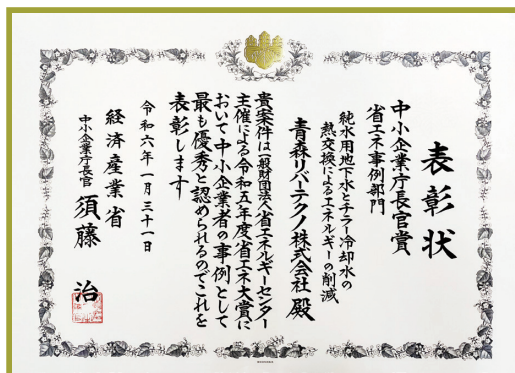 表彰状
中小企業庁長官賞
省エネ事例部門
純水用地下水とチラー冷却水の
熱交換によるエネルギーの削減
青森リバーテクノ株式会社 殿
貴案件は一般財団法人省エネルギーセンター
主催による令和五年度省エネ大賞に
おいて中小企業者の事例として
最も優秀と認められるのでこれを
表彰します
令和六年一月三十一日
経済産業省
中小企業庁長官 須藤 治